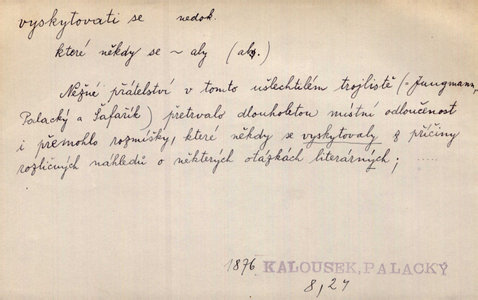 vyskytovati se nedok.
které někdy se ~ aly (abs.)
Něžné přátelství v tomto ušlechtilém trojlístě (= Jungmann,
Palacký a Šafařík) přetrvalo dlouholetou místní odloučnost
i přemohlo rozmíšky, které někdy se vyskytovaly z příčiny
rozličných náhledů o některých otázkách literárných; .....
1876 KALOUSEK, PALACKÝ
8,24